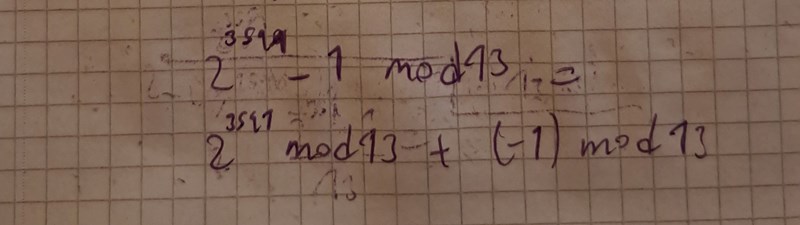 2^3521 - 1 mod 13 =
2^3521 mod 13 + (-1) mod 13